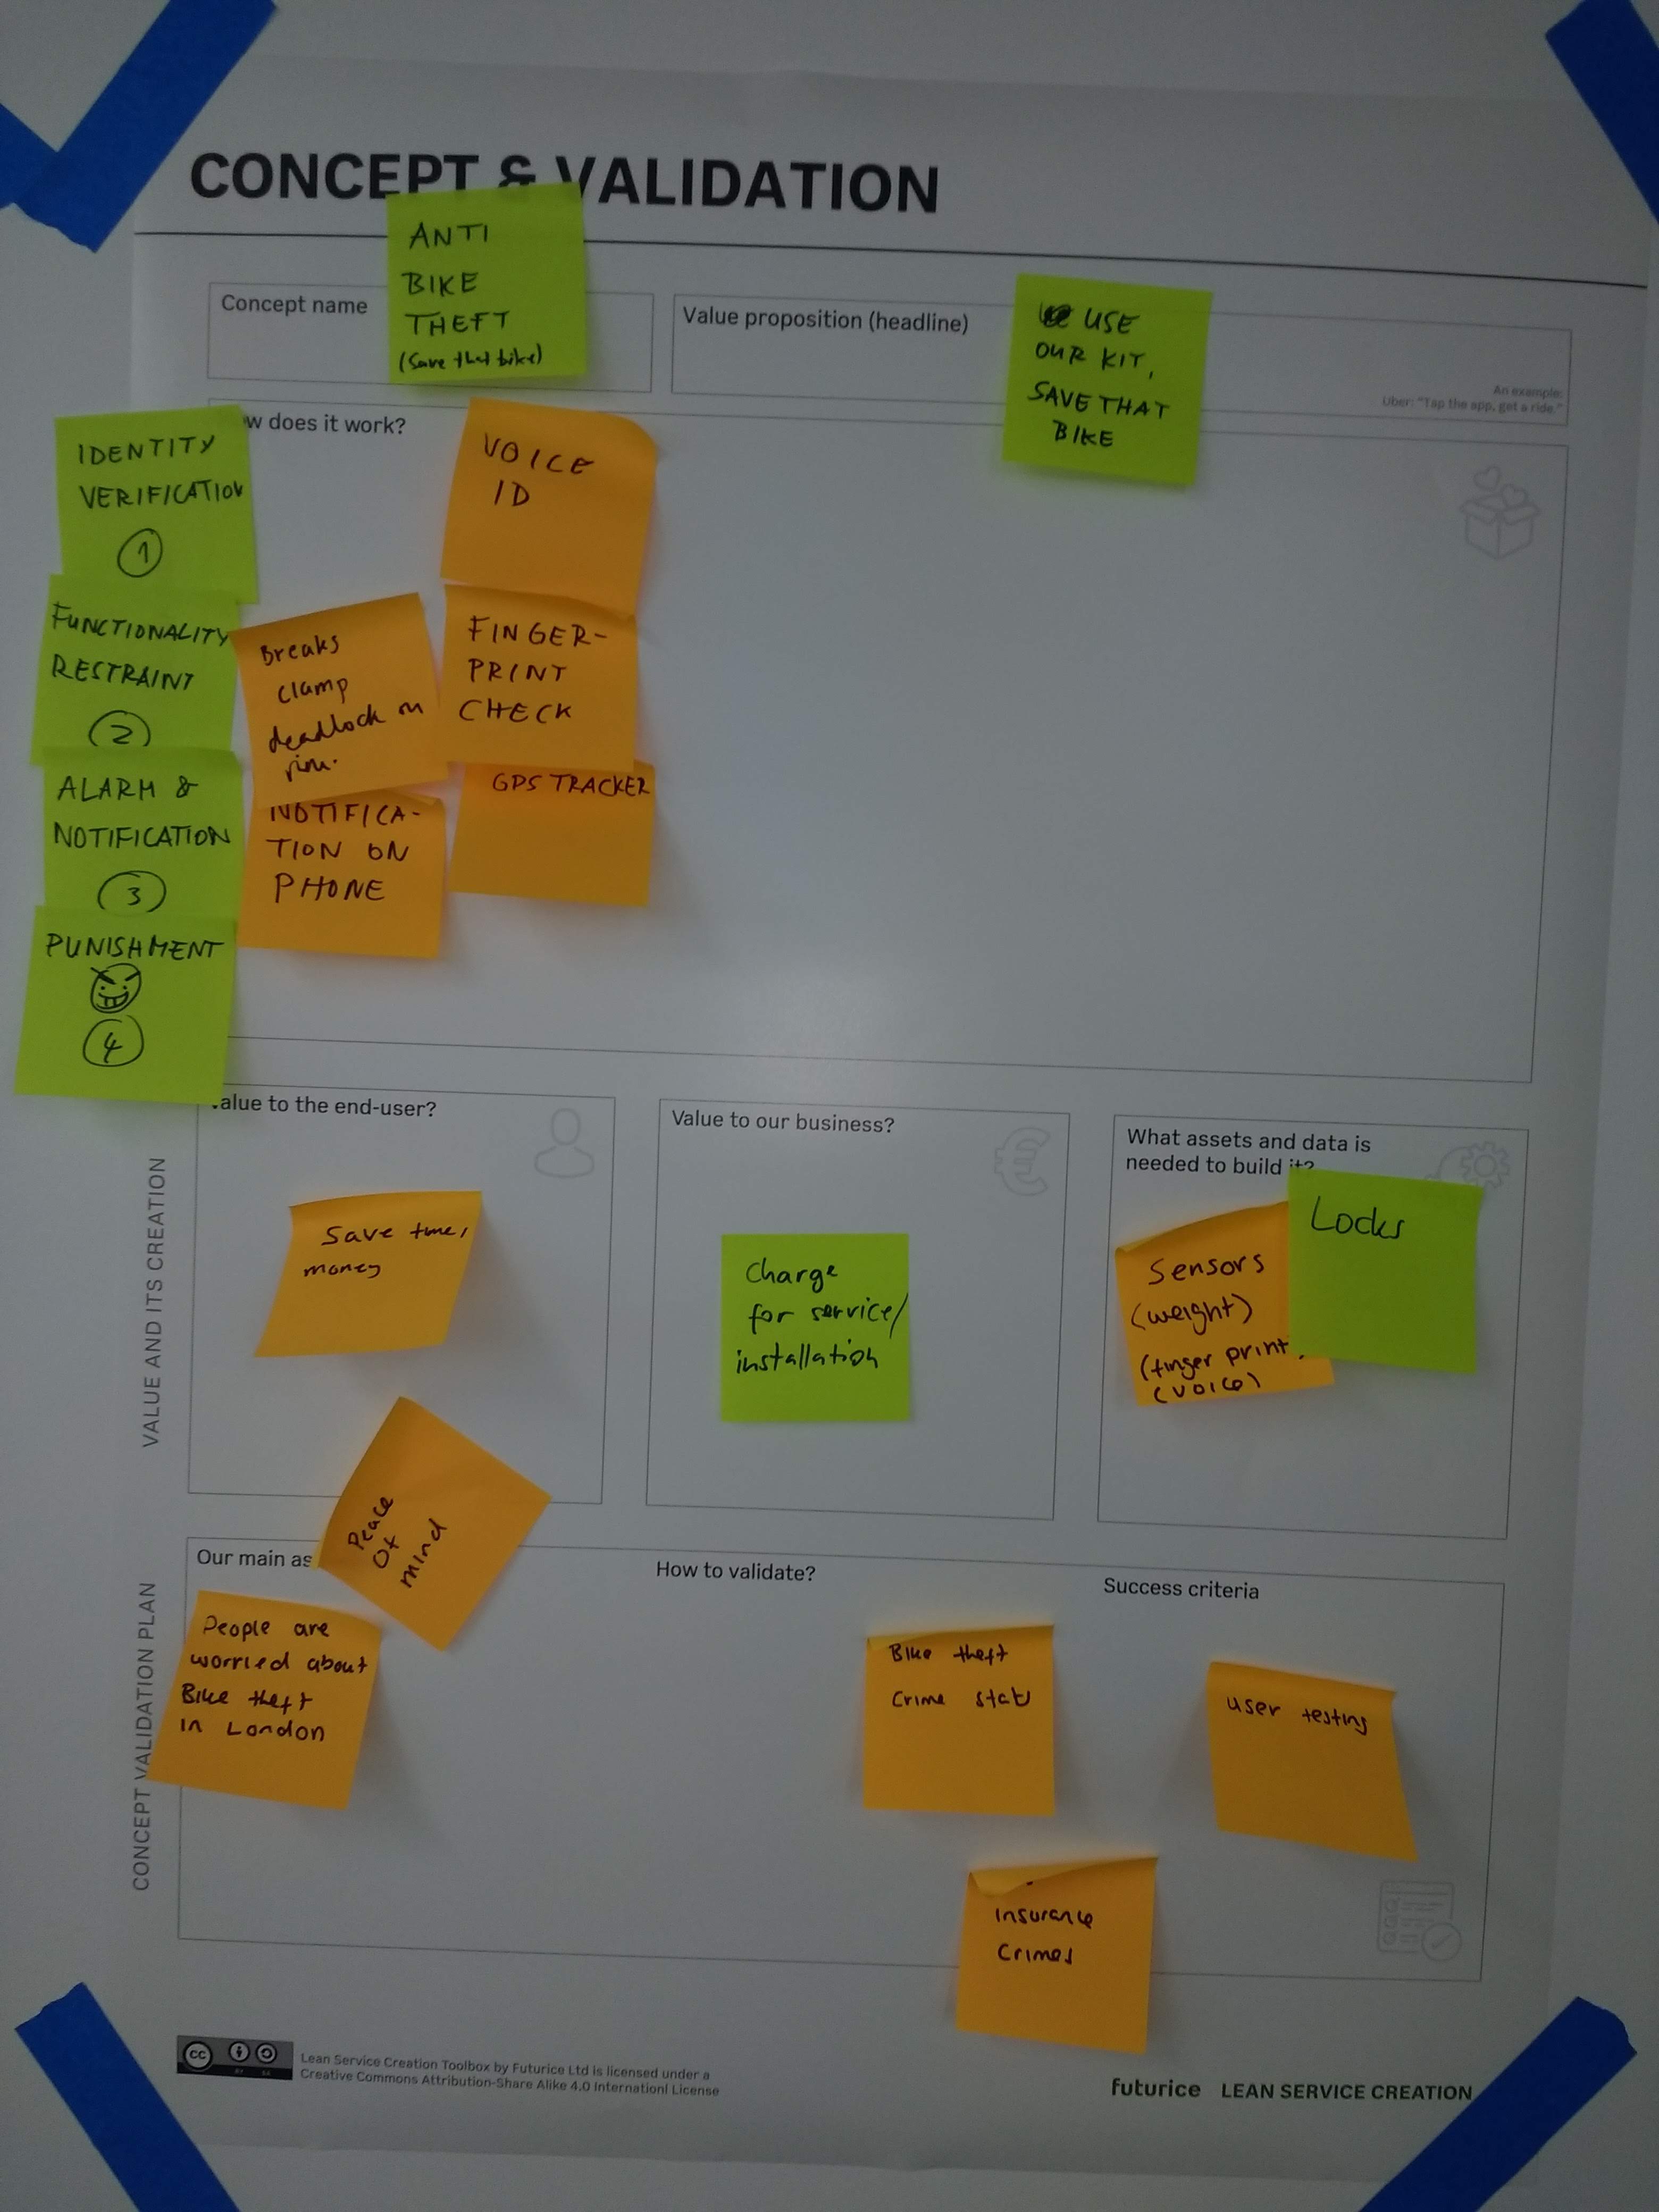 CONCEPT & VALIDATION
ANTI
BIKE
THEFT
(Save that bike)
Concept name
Value proposition (headline)
USE
OUR KIT,
SAVE THAT
BIKE
An example:
Uber: "Tap the app, get a ride."
w does it work?
IDENTITY
VERIFICATION
1
VOICE
ID
FUNCTIONALITY
RESTRAINT
2
Breaks
clamp
deadlock on
rim.
FINGER-
PRINT
CHECK
ALARM &
NOTIFICATION
3
NOTIFICA-
TION ON
PHONE
GPS TRACKER
PUNISHMENT
4
VALUE AND ITS CREATION
alue to the end-user?
Save time,
money
Peace
Of
mind
Value to our business?
Charge
for service/
installation
What assets and data is
needed to build it?
Sensors
(weight)
(finger print
(voice)
Locks
CONCEPT VALIDATION PLAN
Our main as
People are
worried about
Bike theft
in London
How to validate?
Bike theft
Crime stats
Insurance
Crimes
Success criteria
user testing
cc
BY SA
Lean Service Creation Toolbox by Futurice Ltd is licensed under a
Creative Commons Attribution-Share Alike 4.0 Internationl License
futurice LEAN SERVICE CREATION